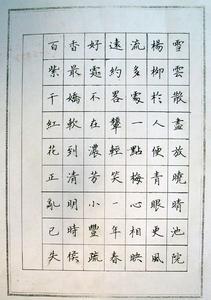 雪雲散盡放曉晴池院
楊柳於人便青眼更風
流多處一點梅心相映
遠約畧顰輕笑一年春
好處不在濃芳小豐疏
香最嬌軟到清明時候
百紫千紅花正亂已失